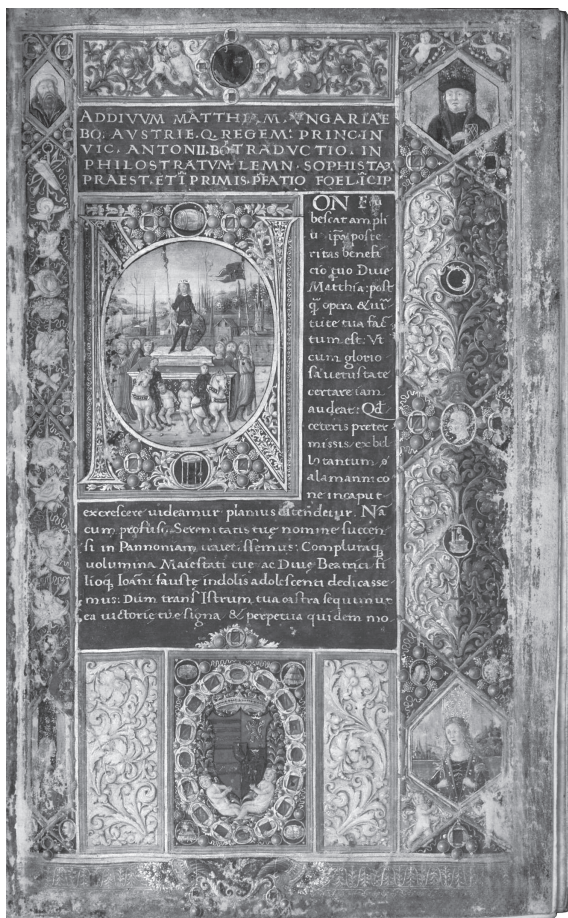 AD DIVVM MATTHIAM VNGARIAE
BQ. AVSTRIE.Q. REGEM: PRINC. IN
VIC. ANTONII. BŌ TRADVCTIO. IN
PHILOSTRATVM LEMN. SOPHISTAȜ
PRAEST. ET I PRIMIS. PFATIO FOELICIP
ON
bescat ampli
u ip̄a poste
ritas benefi
cio tuo Diue
Matthia: post
q̄ opera & uir
tute tua fac
tum est. Vt
cum glorio
sa uetustate
certare iam
audeat: Qd
ceteris preter
missis, ex bel
lo tantum
alamannico
ne in caput
excrescere uideamur planius ostendetur. Nā
cum profusi, Serenitatis tuę nomine succen
si in Pannoniam Compluraq,
uolumina Maiestati tue ac Diue Beatrici fi
lioq, Ioāni fauste indolis adolescenti dedicasse
mus: Dum trans Istrum, tua castra sequimur
ea uictorie tue signa, & perpetua quidem mo